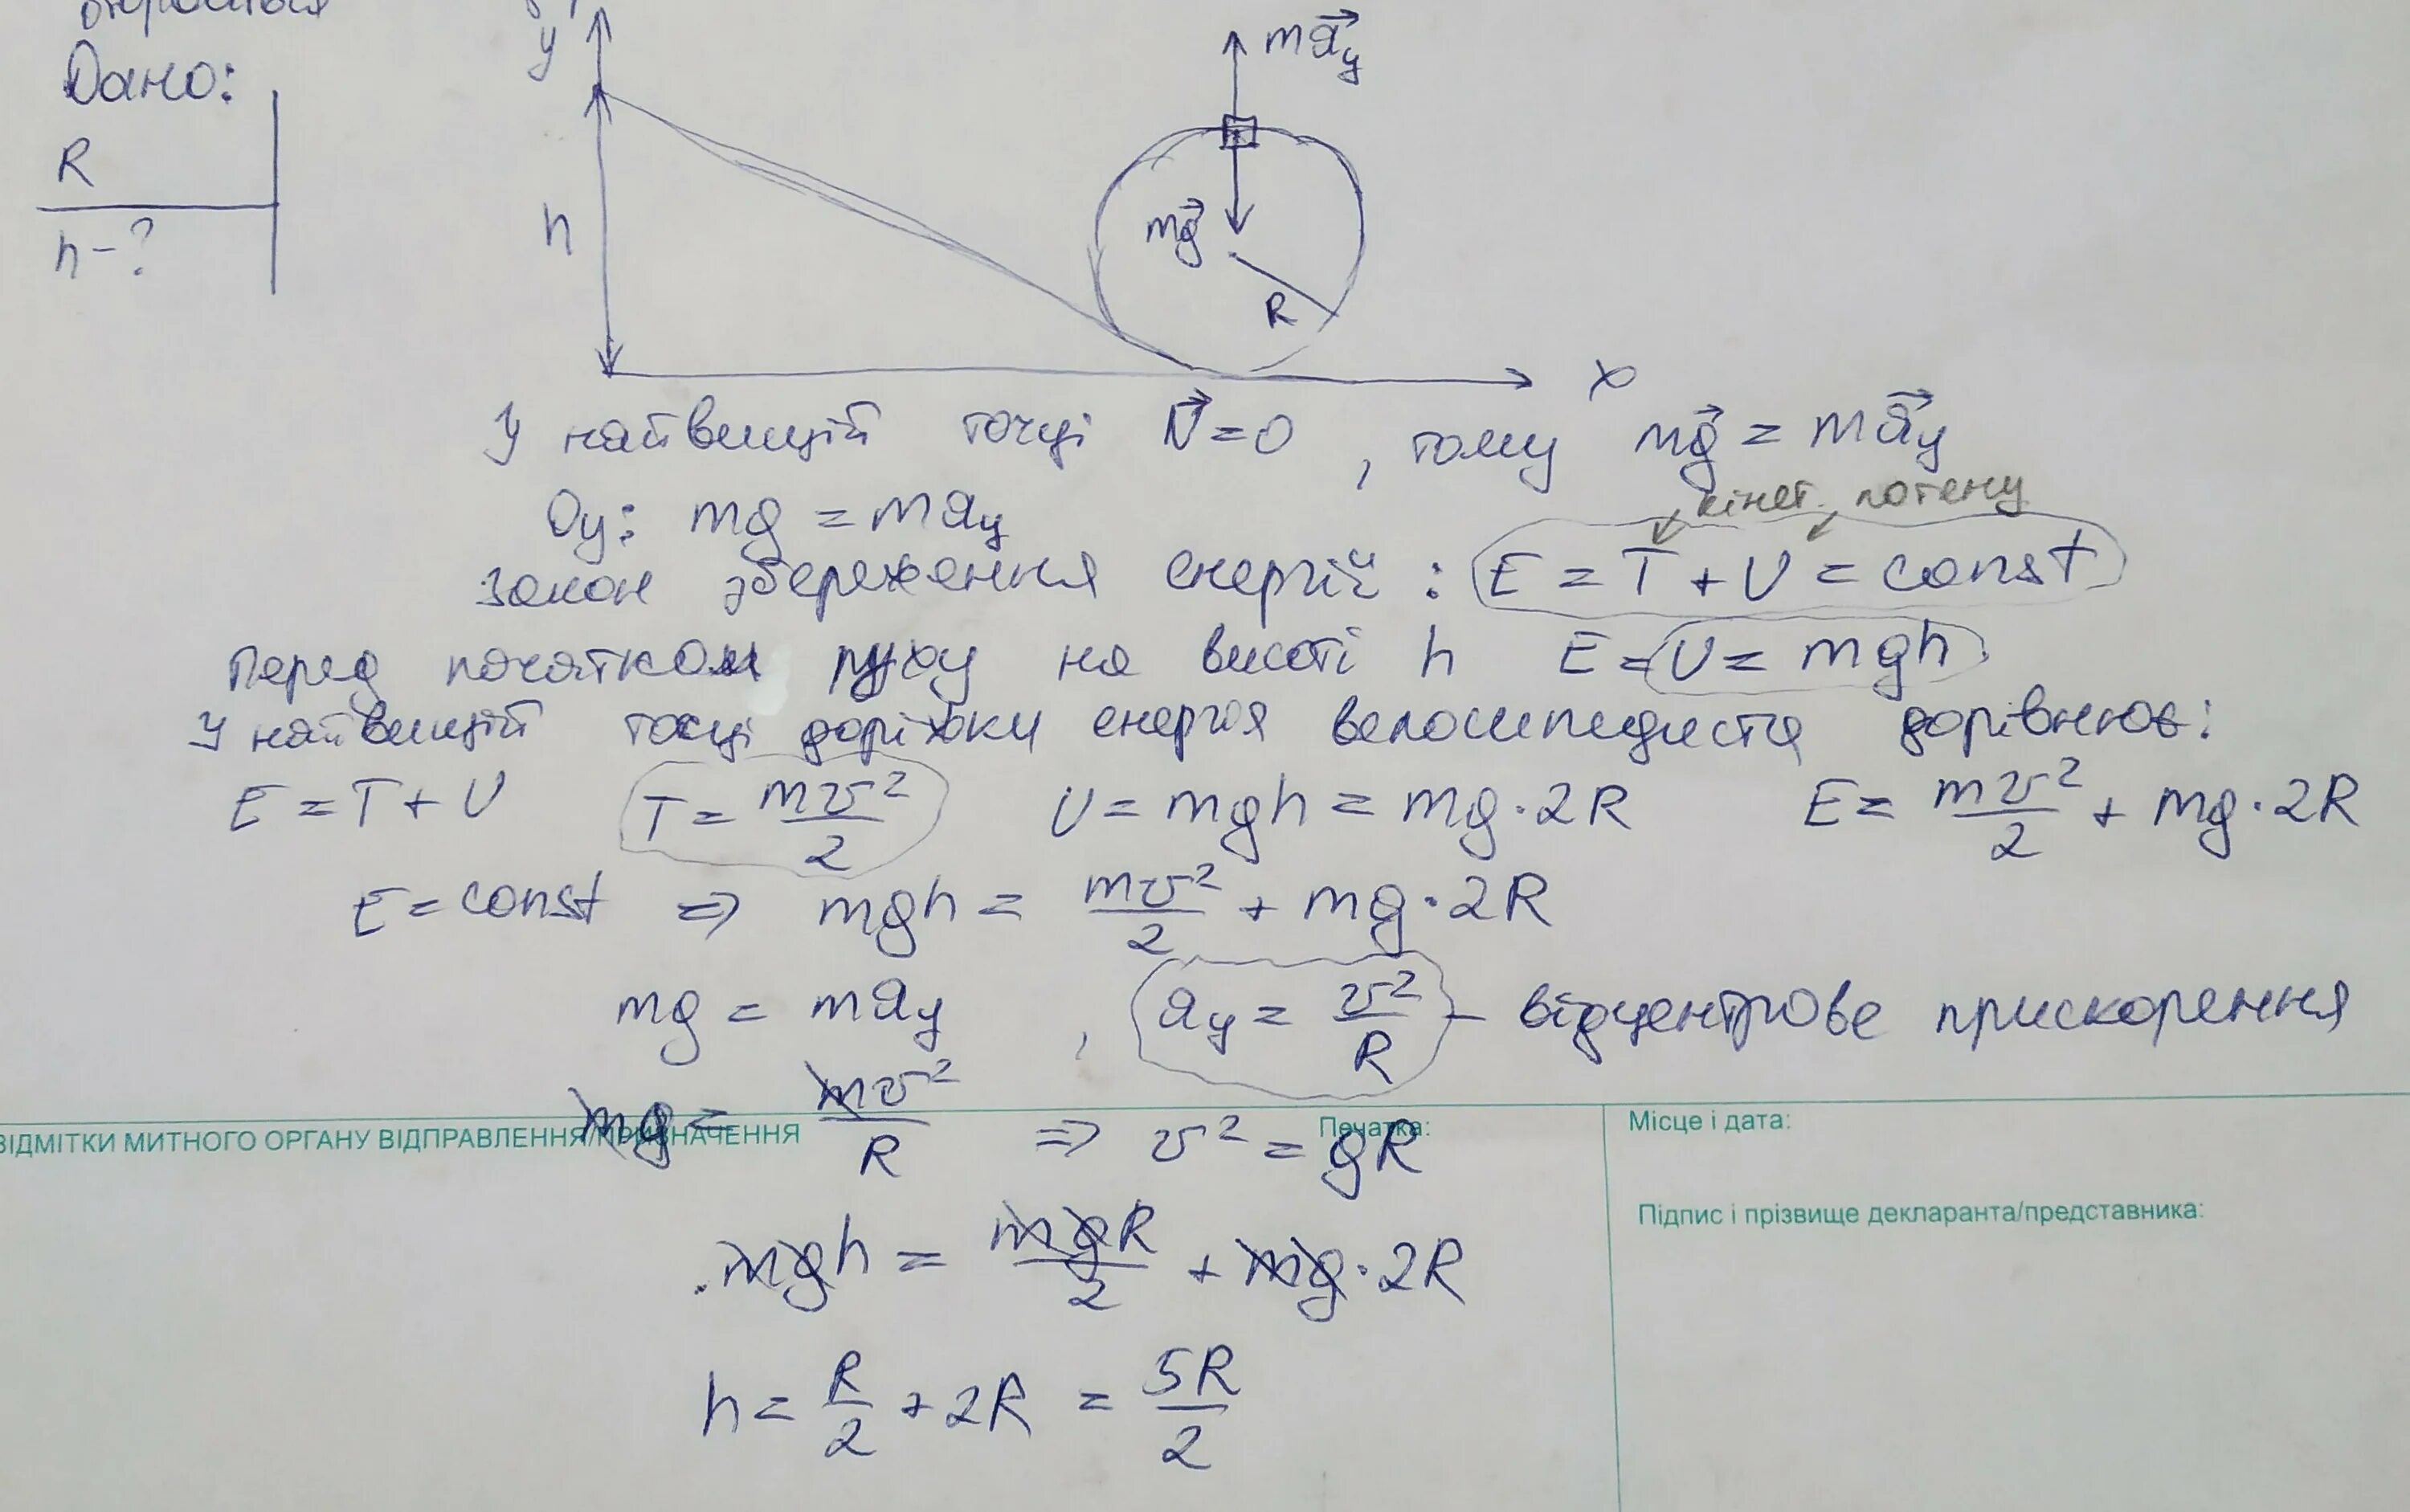 Дано:
R
h-?
y
h
mа⃗y
mg⃗
R
x
У найвищій точці N⃗=0, тому mg⃗ = mа⃗y
Оy: mg = mаy
кінет. потенц
закон збереження енергії: E = T + U = const
Перед початком руху на висоті h E=U= mgh
У найвищій точці доріжки енергія велосипедиста дорівнює:
E = T + U T = mv²/2 U = mgh = mg·2R E = mv²/2 + mg·2R
E = const ⇒ mgh = mv²/2 + mg·2R
mg = mаy , аy = v²/R – відцентрове прискорення
mg = mv²/R ⇒ v² = gR
ВІДМІТКИ МИТНОГО ОРГАНУ ВІДПРАВЛЕННЯ/ПРИЗНАЧЕННЯ Печатка: Місце і дата:
Підпис і прізвище декларанта/представника:
mgh = mgR/2 + mg·2R
h = R/2 + 2R = 5R/2